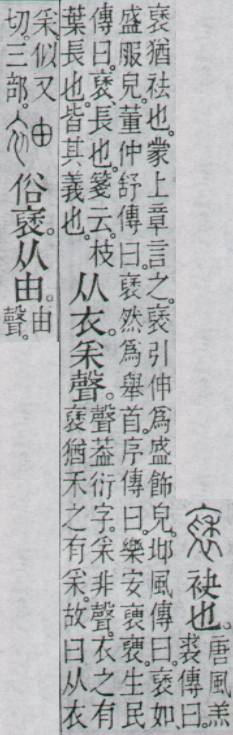 袂也。
唐風羔
裘傳曰。
褎猶袪也。蒙上章言之。褎引伸爲盛飾皃。邶風傳曰。褎如
盛服皃。董仲舒傳曰。褎然爲舉首。序傳曰。樂安褎褎。生民
傳曰。褎、長也。箋云。枝
葉長也。皆其義也。
从衣。采聲。
聲葢衍字。采非聲。衣之有
褎猶禾之有采。故曰从衣
采。似又
切。三部。
俗褎。从由。
由
聲。